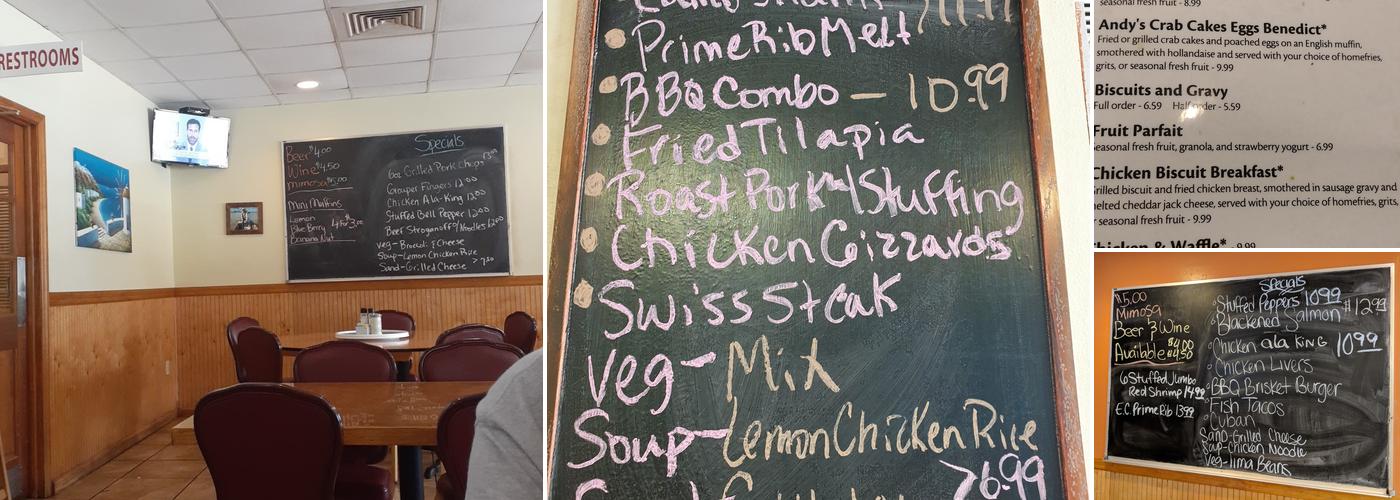 RESTROOMS
Beer $4.00
Wine $4.50
mimosa $5.00
Mini Muffins
Lemon
Blue Berry 4 for 3.00
Banana Nut
Specials
6oz Grilled Pork Chops
Grouper Fingers 12.00
Chicken Ala-King 12.00
Stuffed Bell Pepper 12.00
Beef Stroganoff w/Noodles 12.00
Veg-Broccoli & Cheese
Soup-Lemon Chicken Rice
Sand-Grilled Cheese > 7.50
11.99
Prime Rib Melt
BBQ Combo — 10.99
Fried Tilapia
Roast Pork w/Stuffing
Chicken Gizzards
Swiss Steak
Veg- Mix
Soup- Lemon Chicken Rice
>6.99
seasonal fresh fruit - 8.99
Andy's Crab Cakes Eggs Benedict*
Fried or grilled crab cakes and poached eggs on an English muffin,
smothered with hollandaise and served with your choice of homefries,
grits, or seasonal fresh fruit - 9.99
Biscuits and Gravy
Full order - 6.59 Half order - 5.59
Fruit Parfait
Seasonal fresh fruit, granola, and strawberry yogurt - 6.99
Chicken Biscuit Breakfast*
Grilled biscuit and fried chicken breast, smothered in sausage gravy and
melted cheddar jack cheese, served with your choice of homefries, grits,
r seasonal fresh fruit - 9.99
Chicken & Waffle* - 9.99
$5.00
Mimosa
Beer & Wine
Available $4.00
$4.50
6 Stuffed Jumbo
Red Shrimp 14.99
E.C. Prime Rib 13.99
Specials
Stuffed Peppers 10.99
Blackened Salmon $12.99
Chicken ala King 10.99
Chicken Livers
BBQ Brisket Burger
Fish Tacos
Cuban
Sand-Grilled Cheese
Soup-Chicken Noodle
Veg-lima Beans